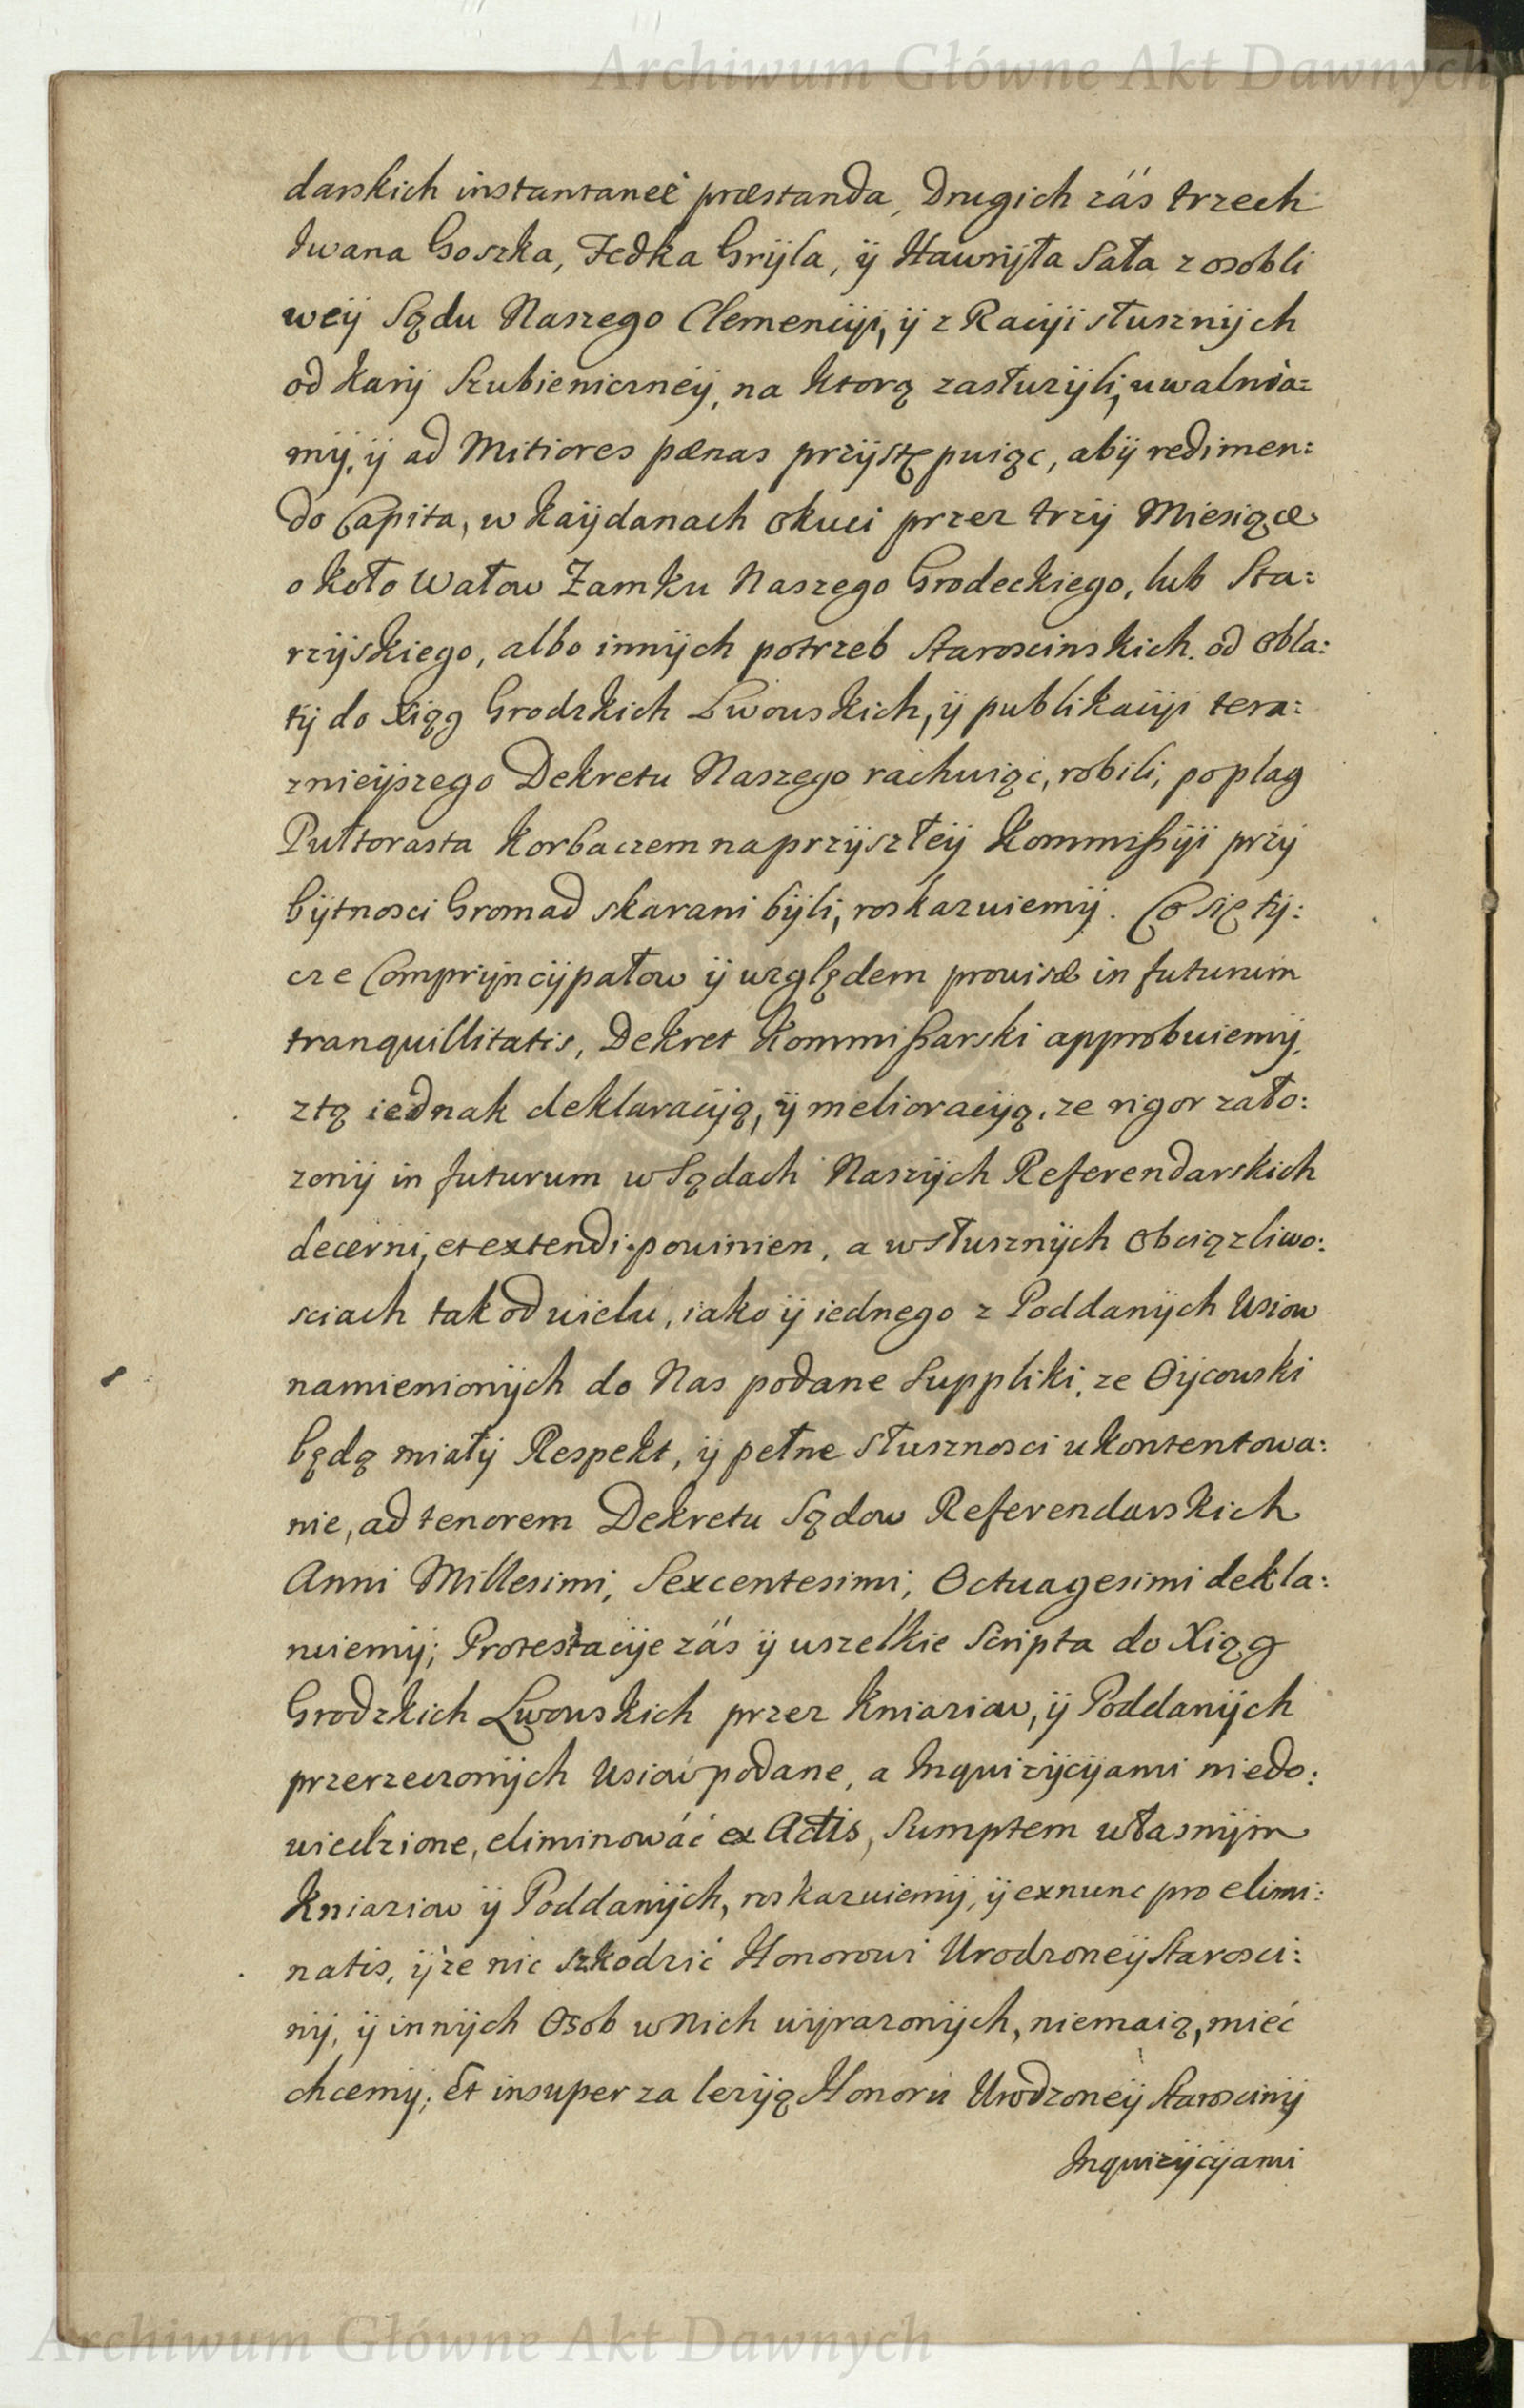 Archiwum Główne Akt Dawnych
darskich instantaneè præstanda, Drugich záś trzech
Iwana Goszka, Fedka Gryla, ÿ Hawryła Sała z osobli
weÿ Sądu Naszego Clemencÿi, ÿ z Racÿi słusznÿch
od Karÿ Szubieniczneÿ, na ktorą zasłużÿli, uwalnia=
mÿ, ÿ ad Mitiores pænas przÿstępuiąc, abÿ redimen=
do Capita, w Kaÿdanach okuci przez trzÿ Miesiące
około Wałow Zamku Naszego Grodeckiego, lub Sta=
rzÿskiego, albo innÿch potrzeb Staroscinskich. od Obla=
tÿ do Xiąg Grodzkich Lwowskich, ÿ publikacÿi tera=
znieÿszego Dekretu Naszego rachuiąc, robili, po plag
Pułtorasta Korbaczem na przÿszłeÿ Kommißÿi przÿ
bÿtnosci Gromad skarani bÿli, roskazuiemÿ. Co się tÿ=
cze Comprÿncÿpałow ÿ względem provisæ in futurum
tranquillitatis, Dekret Kommißarski approbuiemÿ,
z tą iednak deklaracÿą, ÿ melioracÿą, ze rigor zało=
zonÿ in futurum w Sądach Naszÿch Referendarskich
decerni, et extendi powinien, a w słusznÿch Obciązliwo=
sciach tak od wielu, iako ÿ iednego z Poddanÿch Wsiow
namienionÿch do Nas podane Suppliki, ze Oÿcowski
będą miałÿ Respekt, ÿ pełne słusznosci ukontentowa=
nie, ad tenorem Dekretu Sądow Referendarskich
Anni Millesimi, Sexcentesimi, Octuagesimi dekla=
ruiemÿ; Protestacÿe záś ÿ wszelkie Scripta do Xiąg
Grodzkich Lwowskich przez Kniaziow, ÿ Poddanÿch
przerzeczonÿch Wsiow podane, a Inquizÿcÿjami niedo=
wiedzione, eliminowáć ex Actis, Sumptem własnÿm
Kniaziow ÿ Poddanÿch, roskazuiemÿ, ÿ exnunc pro elimi=
natis, ÿ ze nic szkodzić Honorowi Urodzoneÿ Starosci=
nÿ, ÿ innÿch Osob w Nich wÿrazonÿch, niemaią, mieć
chcemÿ; Et insuper za lezÿą Honoru Urodzoneÿ Staroscinÿ
Inquizÿcÿjami
Archiwum Główne Akt Dawnych